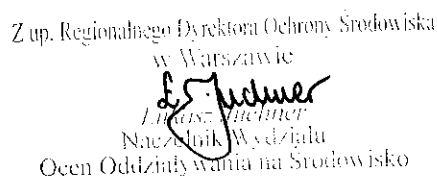 Z up. Regionalnego Dyrektora Ochrony Środowiska
w Warszawie
Łukasz
Naczelnik Wydziału
Ocen Oddziaływania na Środowisko